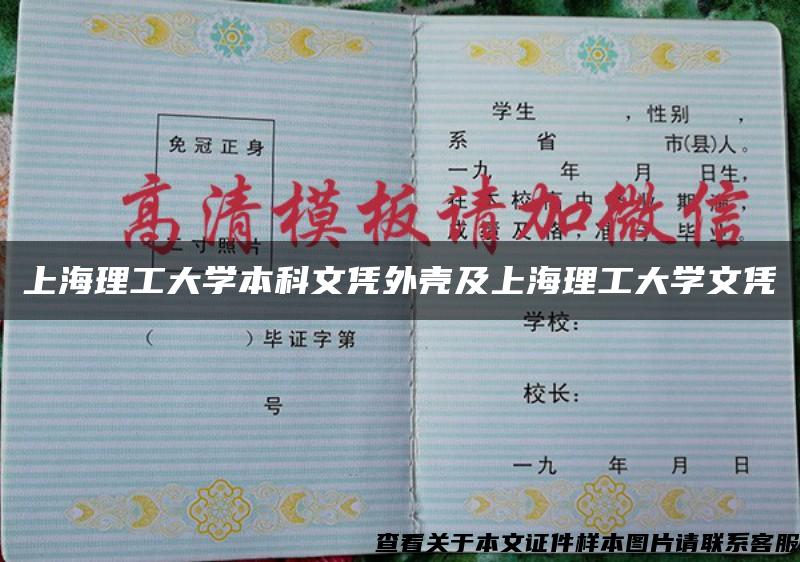 免冠正身
二寸照片
（ ）毕证字第
号
学生 ，性别 ，
系 省 市(县)人。
一九 年 月 日生，
在 校 中 业 期满，
成绩及格，准予毕业。
学校：
校长：
一九 年 月 日
高清模板请加微信
上海理工大学本科文凭外壳及上海理工大学文凭
查看关于本文证件样本图片请联系客服